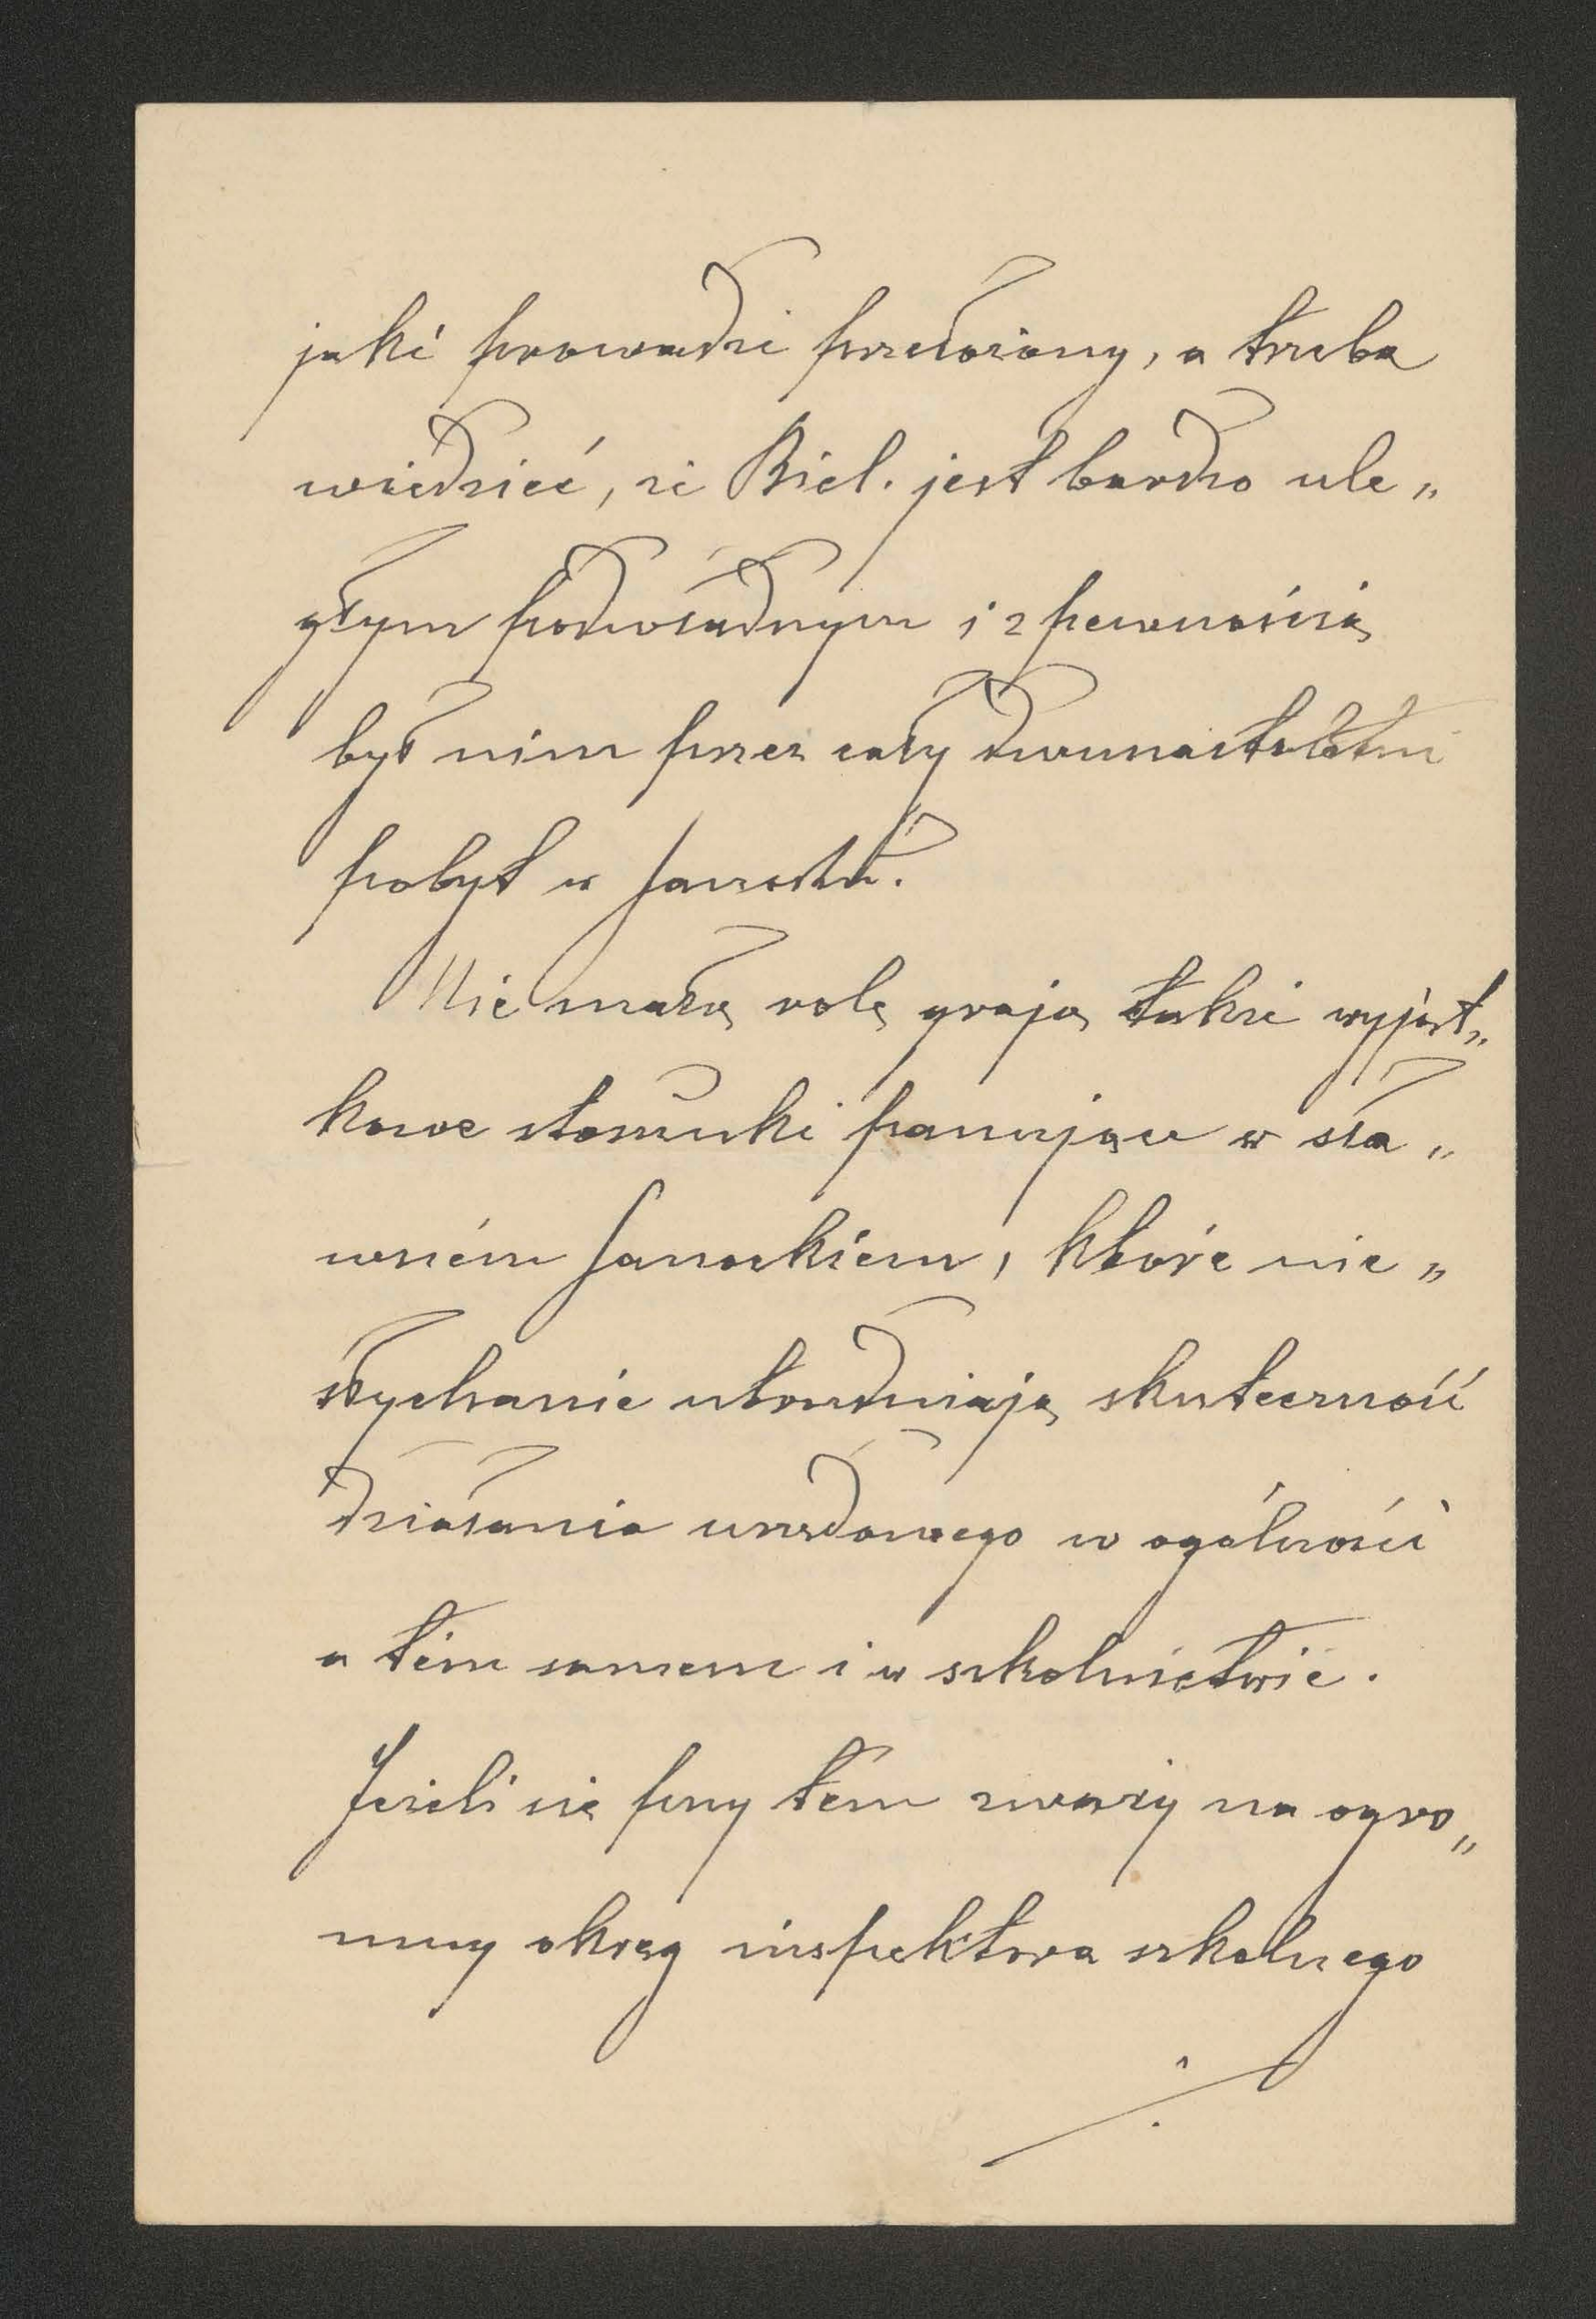 jaki prowadzi przełożony, a trzeba
wiedzieć, że Biel. jest bardzo ule„
głym podwładnym i z pewnością
był nim przez cały dwunastoletni
pobyt w Sanoku.
Nie małą rolę grają także wyjąt„
kowe stosunki panujące w sła„
wném Sanockiem, które nie„
słychanie utrudniają skuteczność
działania urzędowego w ogólności
a tém samem i w szkolnictwie.
Jeżeli się przy tém zważy na ogro„
mny okręg inspektora szkolnego